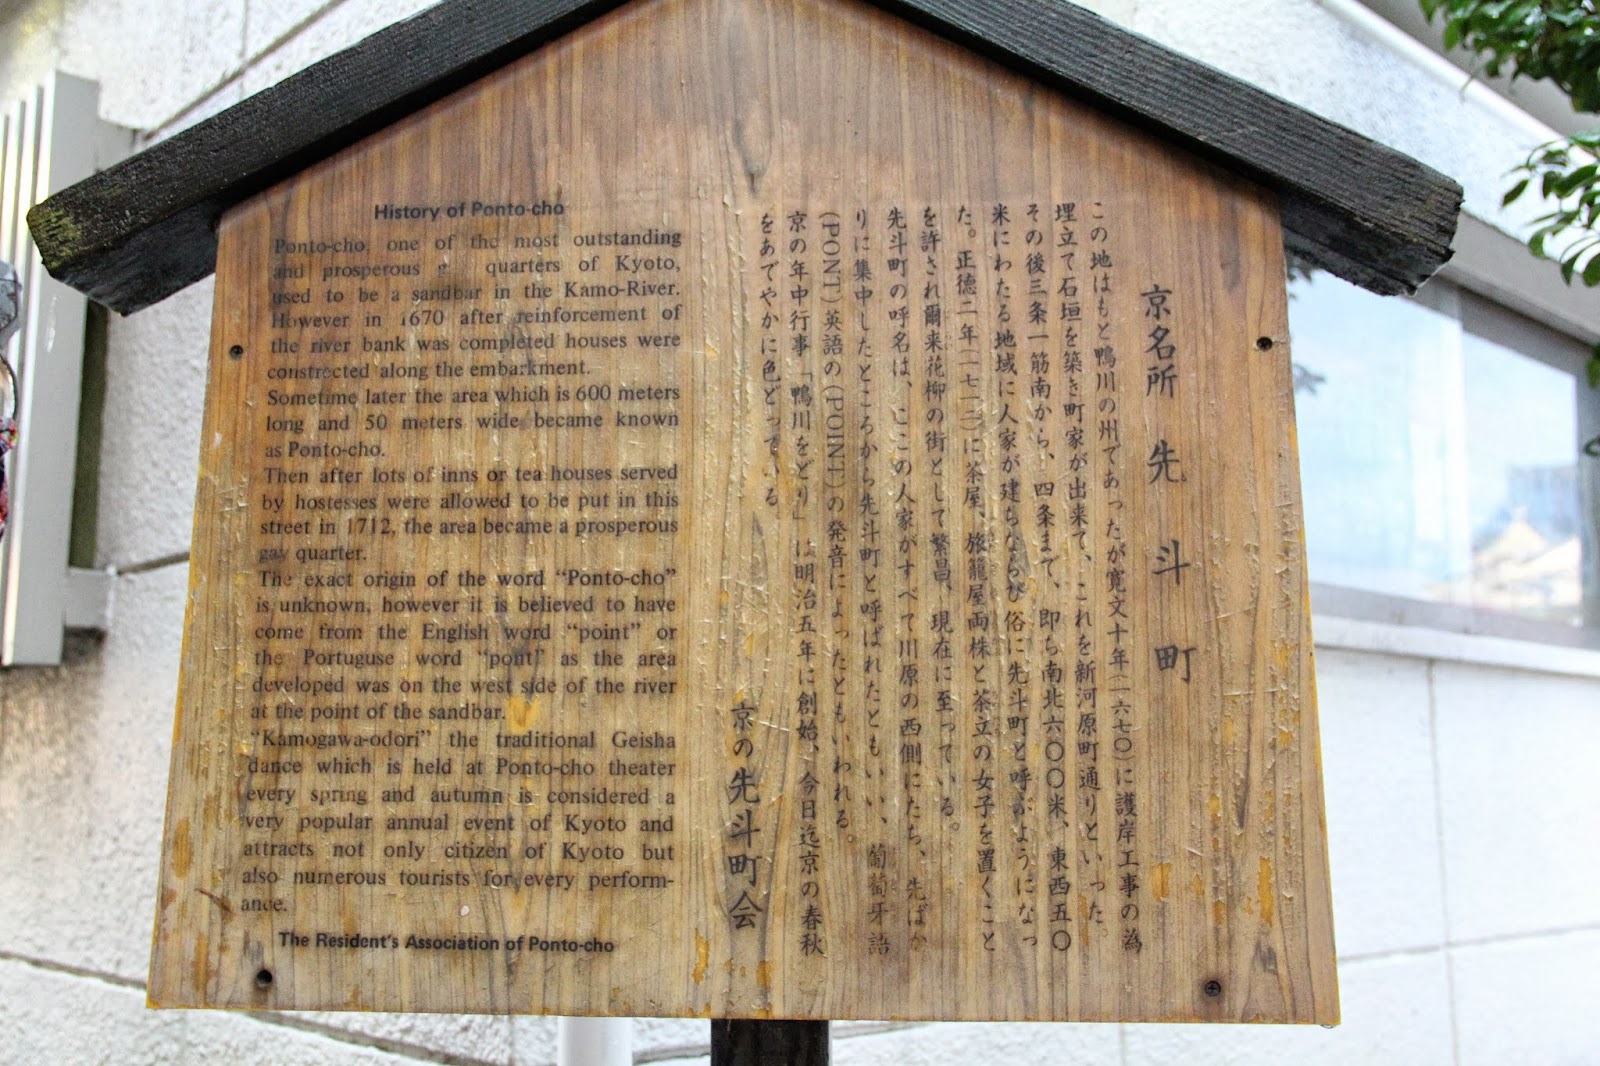 History of Ponto-cho
Ponto-cho, one of the most outstanding
and prosperous g quarters of Kyoto,
used to be a sandbar in the Kamo-River.
However in 1670 after reinforcement of
the river bank was completed houses were
constrected along the embarkment.
Sometime later the area which is 600 meters
long and 50 meters wide became known
as Ponto-cho.
Then after lots of inns or tea houses served
by hostesses were allowed to be put in this
street in 1712, the area became a prosperous
gay quarter.
The exact origin of the word “Ponto-cho”
is unknown, however it is believed to have
come from the English word “point” or
the Portuguse word “pont” as the area
developed was on the west side of the river
at the point of the sandbar.
“Kamogawa-odori” the traditional Geisha
dance which is held at Ponto-cho theater
every spring and autumn is considered a
very popular annual event of Kyoto and
attracts not only citizen of Kyoto but
also numerous tourists for every perform-
ance.
The Resident's Association of Ponto-cho
京名所 先斗町
この地はもと鴨川の州であったが寛文十年(一六七〇)に護岸工事の為
埋立て石垣を築き町家が出来て、これを新河原町通りといった。
その後三条一筋南から、四条まで、即ち南北六〇〇米、東西五〇
米にわたる地域に人家が建ちならび俗に先斗町と呼ぶようになっ
た。正徳二年(一七一二)に茶屋、旅籠屋両株と茶立の女子を置くこと
を許され爾来花柳の街として繁昌、現在に至っている。
先斗町の呼名は、ここの人家がすべて川原の西側にたち、先ばか
りに集中したところから先斗町と呼ばれたともいい、葡萄牙語
(PONT)英語の(POINT)の発音によったともいわれる。
京の年中行事「鴨川をどり」は明治五年に創始、今日迄京の春秋
をあでやかに色どっている
京の先斗町会